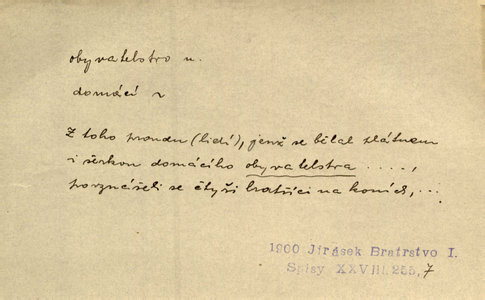 obyvatelstvo n.
domácí ~
Z toho proudu (lidí), jenž se bělal plátnem
i šerkou domácího obyvatelstva ....,
povznášeli se čtyři bratříci na koních, ...
1900 Jirásek Bratrstvo I.
Spisy XXVIII. 255, 7